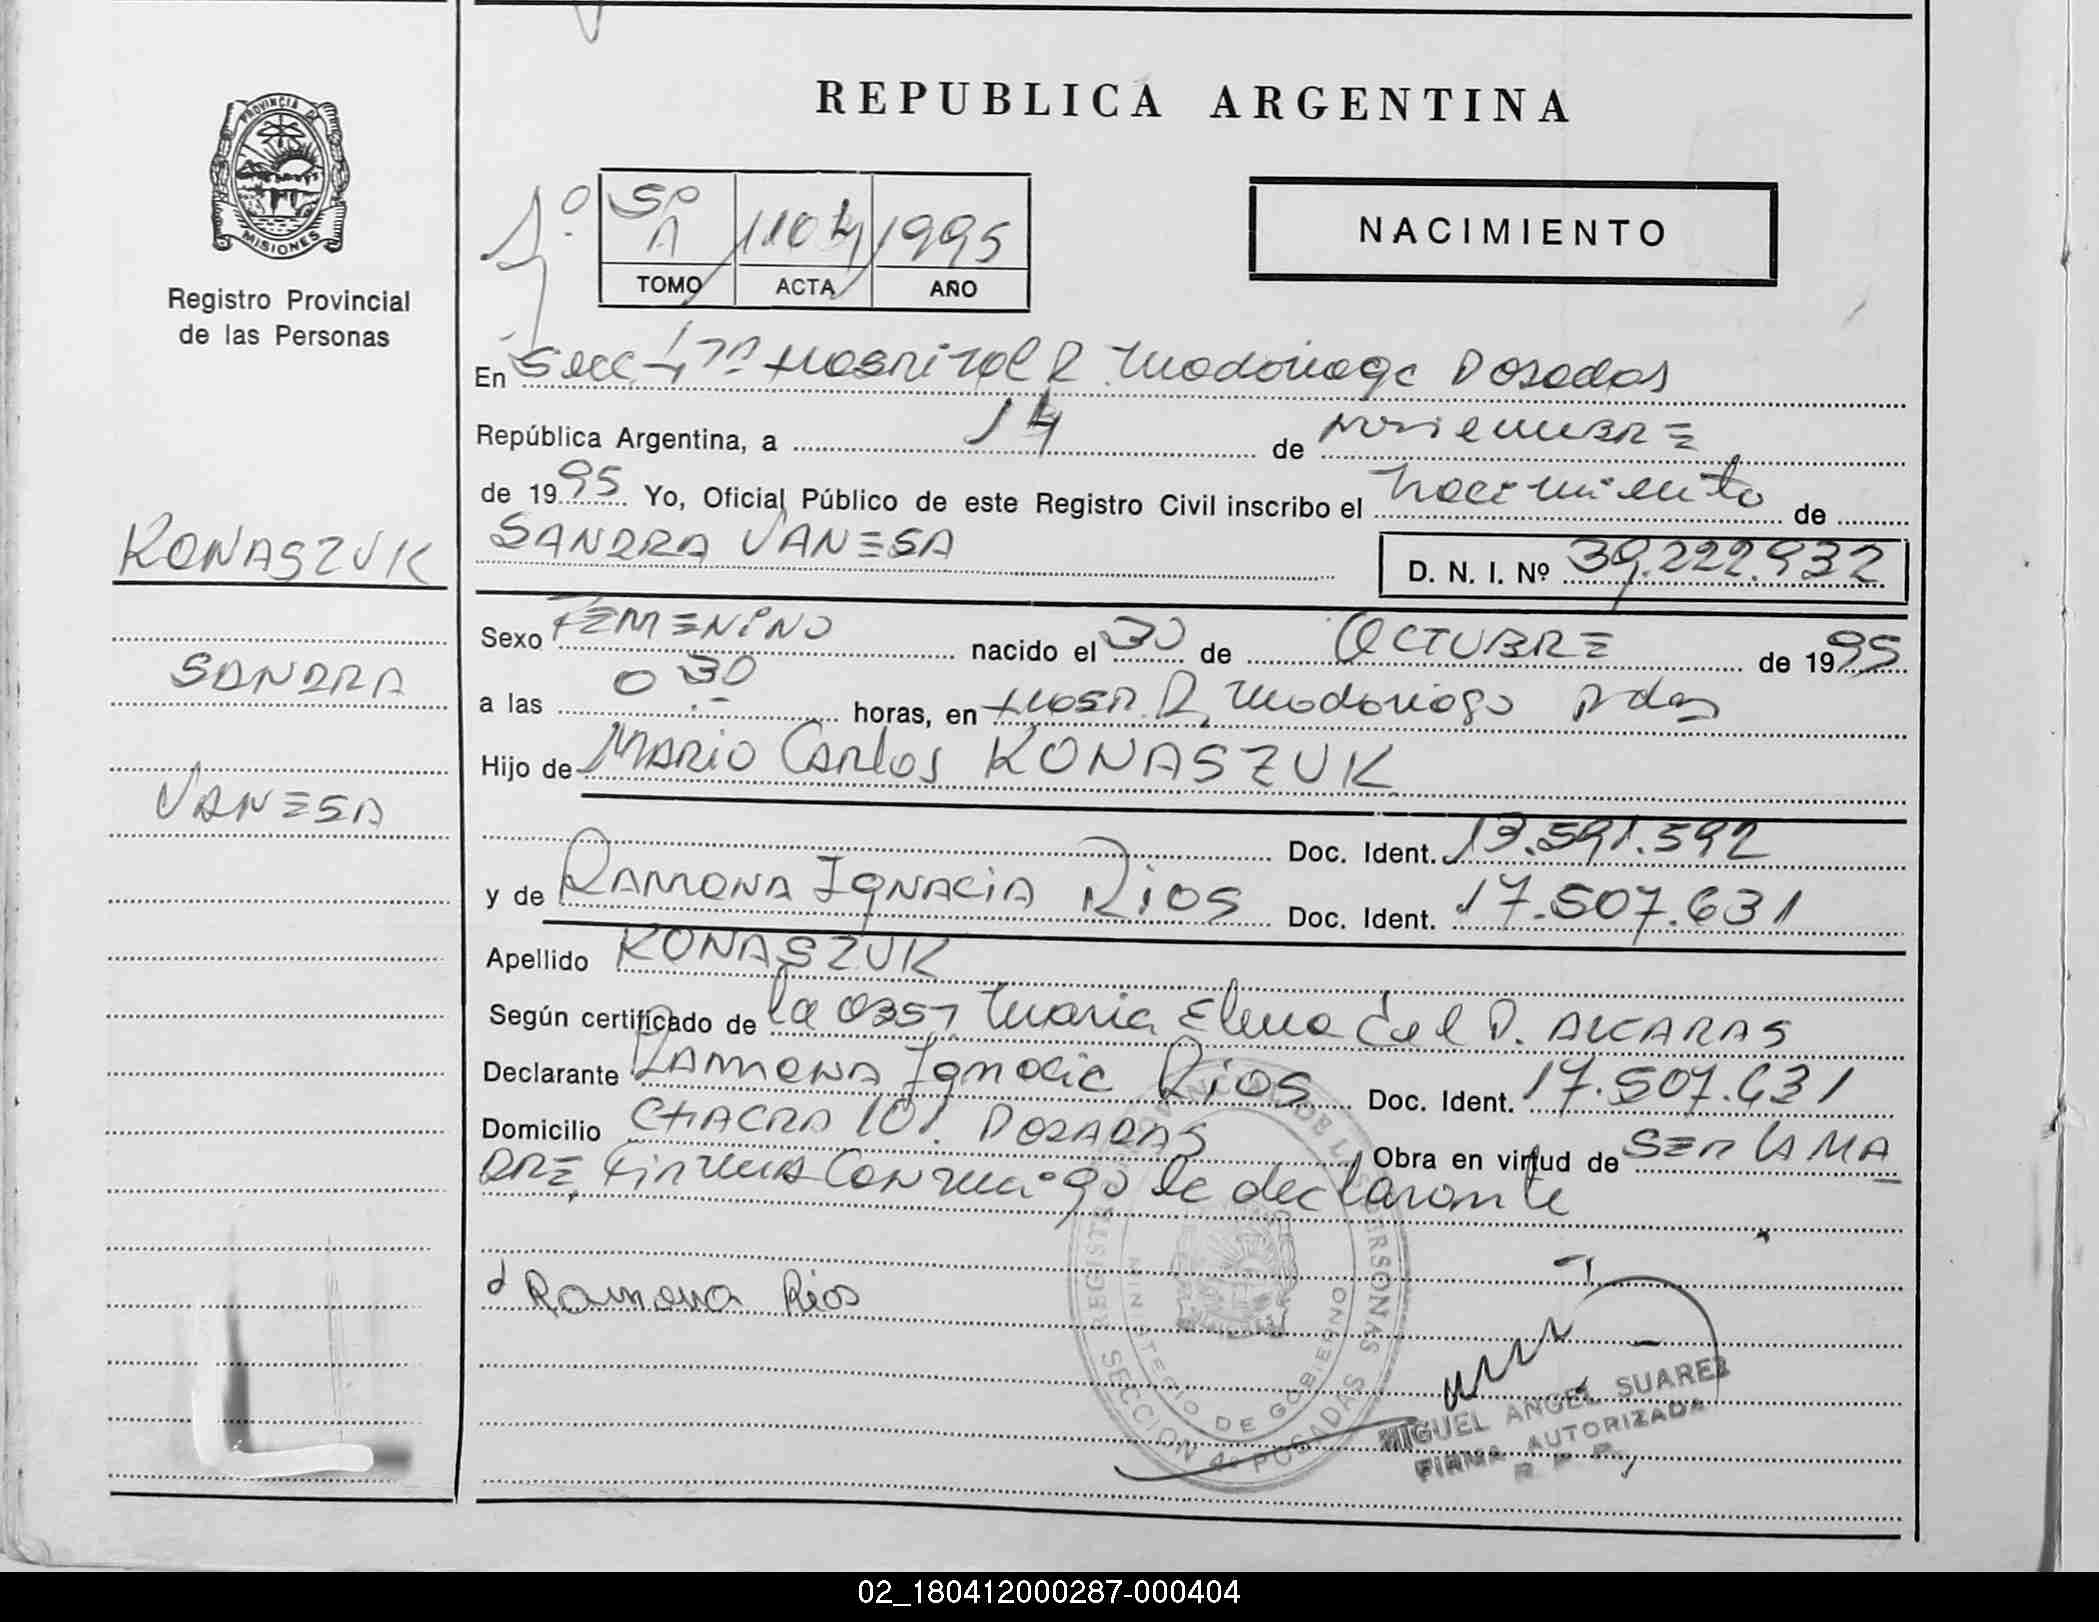 REPUBLICA ARGENTINA
PROVINCIA DE
MISIONES
Registro Provincial
de las Personas
5º A 1104 1995
TOMO ACTA AÑO
NACIMIENTO
En Secc 4ta Hospital R. Madariaga Posadas
República Argentina, a 14 de noviembre
de 1995 Yo, Oficial Público de este Registro Civil inscribo el nacimiento de
SANDRA VANESA D. N. I. Nº 39.222.932
KONASZUK
SANDRA
VANESA
Sexo FEMENINO nacido el 30 de OCTUBRE de 1995
a las 0 30 horas, en Hosp. R. Madariaga Pdas
Hijo de MARIO Carlos KONASZUK
Doc. Ident. 13.591.592
y de RAMONA IGNACIA RIOS Doc. Ident. 17.507.631
Apellido KONASZUK
Según certificado de la OBST Maria Elena del P. ALCARAS
Declarante RAMONA Ignacia Rios Doc. Ident. 17.507.631
Domicilio CHACRA 101. POSADAS Obra en virtud de SER LA MA
DRE, Firma Conmigo la declarante
Ramona Rios
REGISTRO PROVINCIAL DE LAS PERSONAS
MINISTERIO DE GOBIERNO
SECCION 4a POSADAS
MIGUEL ANGEL SUAREZ
FIRMA AUTORIZADA
R. P. P.
02_180412000287-000404